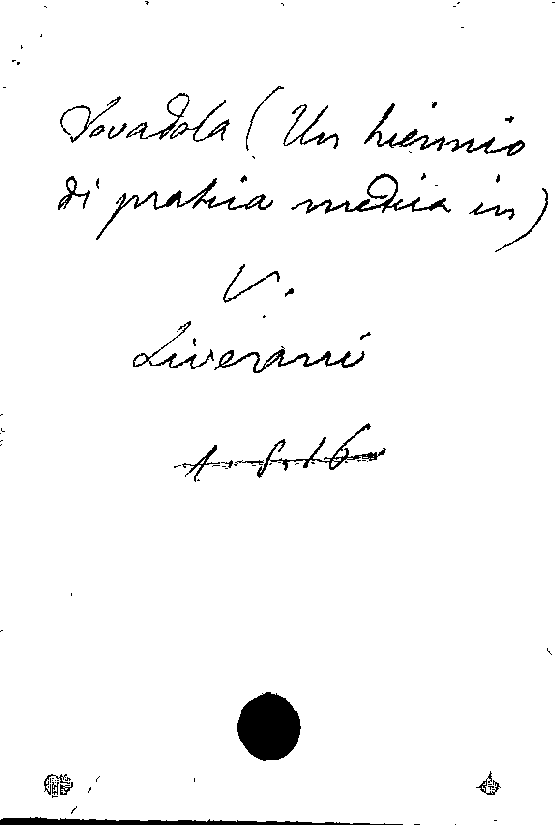 Dovadola (Un biennio
di pratica medica in)
V.
Liverani
1.8.16